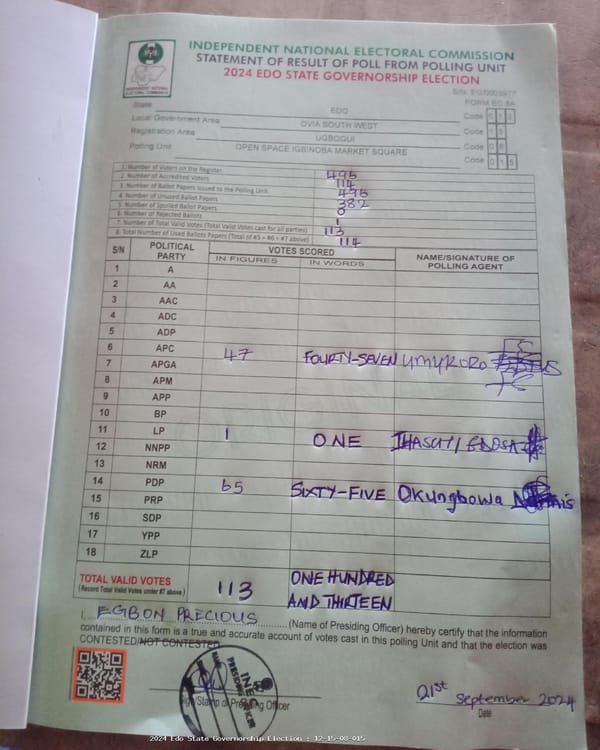 INDEPENDENT NATIONAL ELECTORAL COMMISSION
STATEMENT OF RESULT OF POLL FROM POLLING UNIT
2024 EDO STATE GOVERNORSHIP ELECTION
FORM EC 8A
State EDO Code 012
Local Government Area OVIA SOUTH WEST Code 15
Registration Area UGBOGUI Code 08
Polling Unit OPEN SPACE IGBINOBA MARKET SQUARE Code 015
1. Number of Voters on the Register 495
2. Number of Accredited Voters 114
3. Number of Ballot Papers Issued to the Polling Unit 495
4. Number of Unused Ballot Papers 382
5. Number of Spoiled Ballot Papers 0
6. Number of Rejected Ballots 1
7. Number of Total Valid Votes (Total Valid Votes cast for all parties) 113
8. Total Number of Used Ballots Papers (Total of #5 + #6 + #7 above) 114
S/N POLITICAL PARTY VOTES SCORED IN FIGURES IN WORDS NAME/SIGNATURE OF POLLING AGENT
1 A
2 AA
3 AAC
4 ADC
5 ADP
6 APC 47 FOURTY-SEVEN UMUKORO
7 APGA
8 APM
9 APP
10 BP
11 LP 1 ONE
12 NNPP
13 NRM
14 PDP 65 SIXTY-FIVE Okungbowa
15 PRP
16 SDP
17 YPP
18 ZLP
TOTAL VALID VOTES 113 ONE HUNDRED AND THIRTEEN
(Record Total Valid Votes under #7 above)
I, EGBON PRECIOUS (Name of Presiding Officer) hereby certify that the information
contained in this form is a true and accurate account of votes cast in this polling Unit and that the election was
CONTESTED/NOT CONTESTED
INEC
Sign/Stamp of Presiding Officer
21st September 2024
Date
2024 Edo State Governorship Election : 12-15-08-015